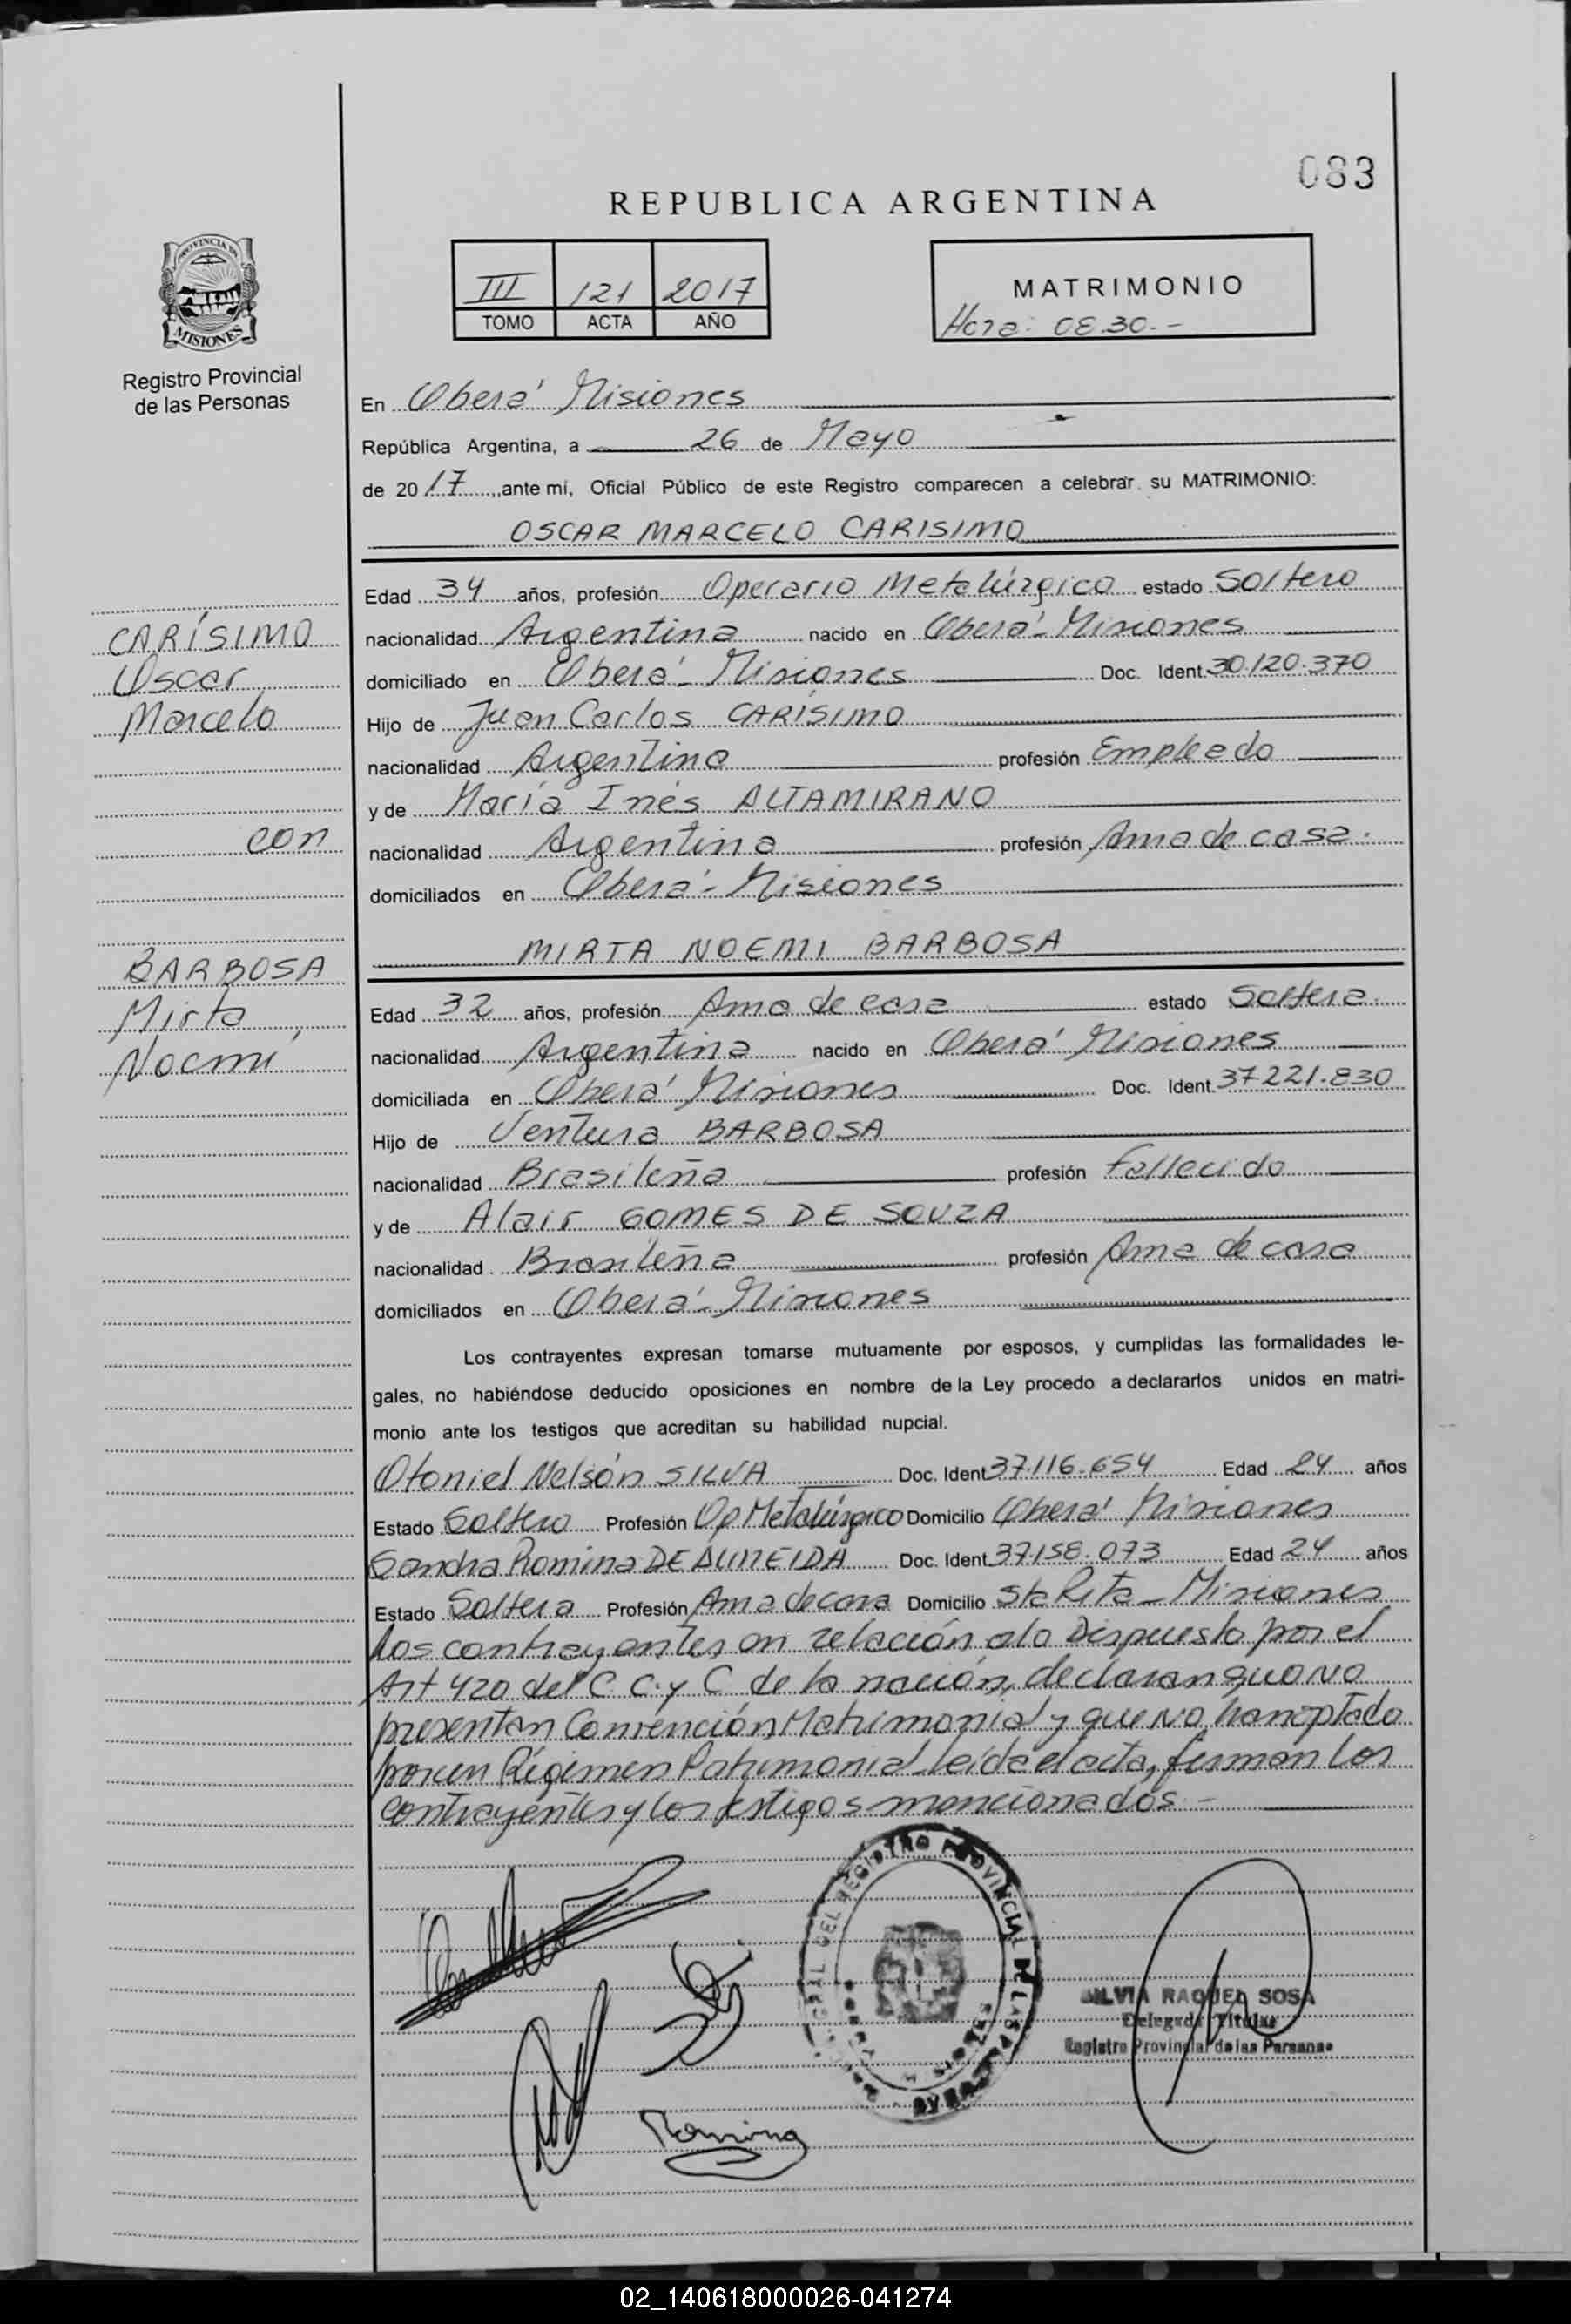 083
REPUBLICA ARGENTINA
PROVINCIA DE
MISIONES
Registro Provincial
de las Personas
III 121 2017
TOMO ACTA AÑO
MATRIMONIO
Hora: 08.30.-
En Oberá Misiones
República Argentina, a 26 de Mayo
de 2017, ante mí, Oficial Público de este Registro comparecen a celebrar su MATRIMONIO:
OSCAR MARCELO CARISIMO
Edad 34 años, profesión Operario Metalúrgico estado Soltero
CARÍSIMO
nacionalidad Argentina nacido en Oberá - Misiones
Oscar
domiciliado en Oberá - Misiones Doc. Ident. 30.120.370
Marcelo
Hijo de Juan Carlos CARÍSIMO
nacionalidad Argentina profesión Empleado
y de María Inés ALTAMIRANO
con
nacionalidad Argentina profesión Ama de casa.
domiciliados en Oberá - Misiones
MIRTA NOEMI BARBOSA
BARBOSA
Edad 32 años, profesión Ama de casa estado Soltera.
Mirta
nacionalidad Argentina nacido en Oberá Misiones
Noemí
domiciliada en Oberá Misiones Doc. Ident. 37221.830
Hijo de Ventura BARBOSA
nacionalidad Brasileña profesión Fallecido
y de Alair GOMES DE SOUZA
nacionalidad Brasileña profesión Ama de casa
domiciliados en Oberá - Misiones
Los contrayentes expresan tomarse mutuamente por esposos, y cumplidas las formalidades le-
gales, no habiéndose deducido oposiciones en nombre de la Ley procedo a declararlos unidos en matri-
monio ante los testigos que acreditan su habilidad nupcial.
Otoniel Nelsón SILVA Doc. Ident 37.116.654 Edad 24 años
Estado Soltero Profesión Op Metalúrgico Domicilio Oberá Misiones
Sandra Romina DE ALMEIDA Doc. Ident. 37158.073 Edad 24 años
Estado Soltera Profesión Ama de casa Domicilio Sta Rita - Misiones
Los contrayentes, en relación a lo Dispuesto por el
Art 420 del C. C. y C de la nación, declaran que NO
presentan Convención Matrimonial y que NO han optado
por un Régimen Patrimonial leída el acta, firman los
contrayentes y los testigos mencionados.-
DEL REGISTRO PROVINCIAL DE LAS
SILVIA RAQUEL SOSA
Delegada Titular
Registro Provincial de las Personas
Romina
02_140618000026-041274